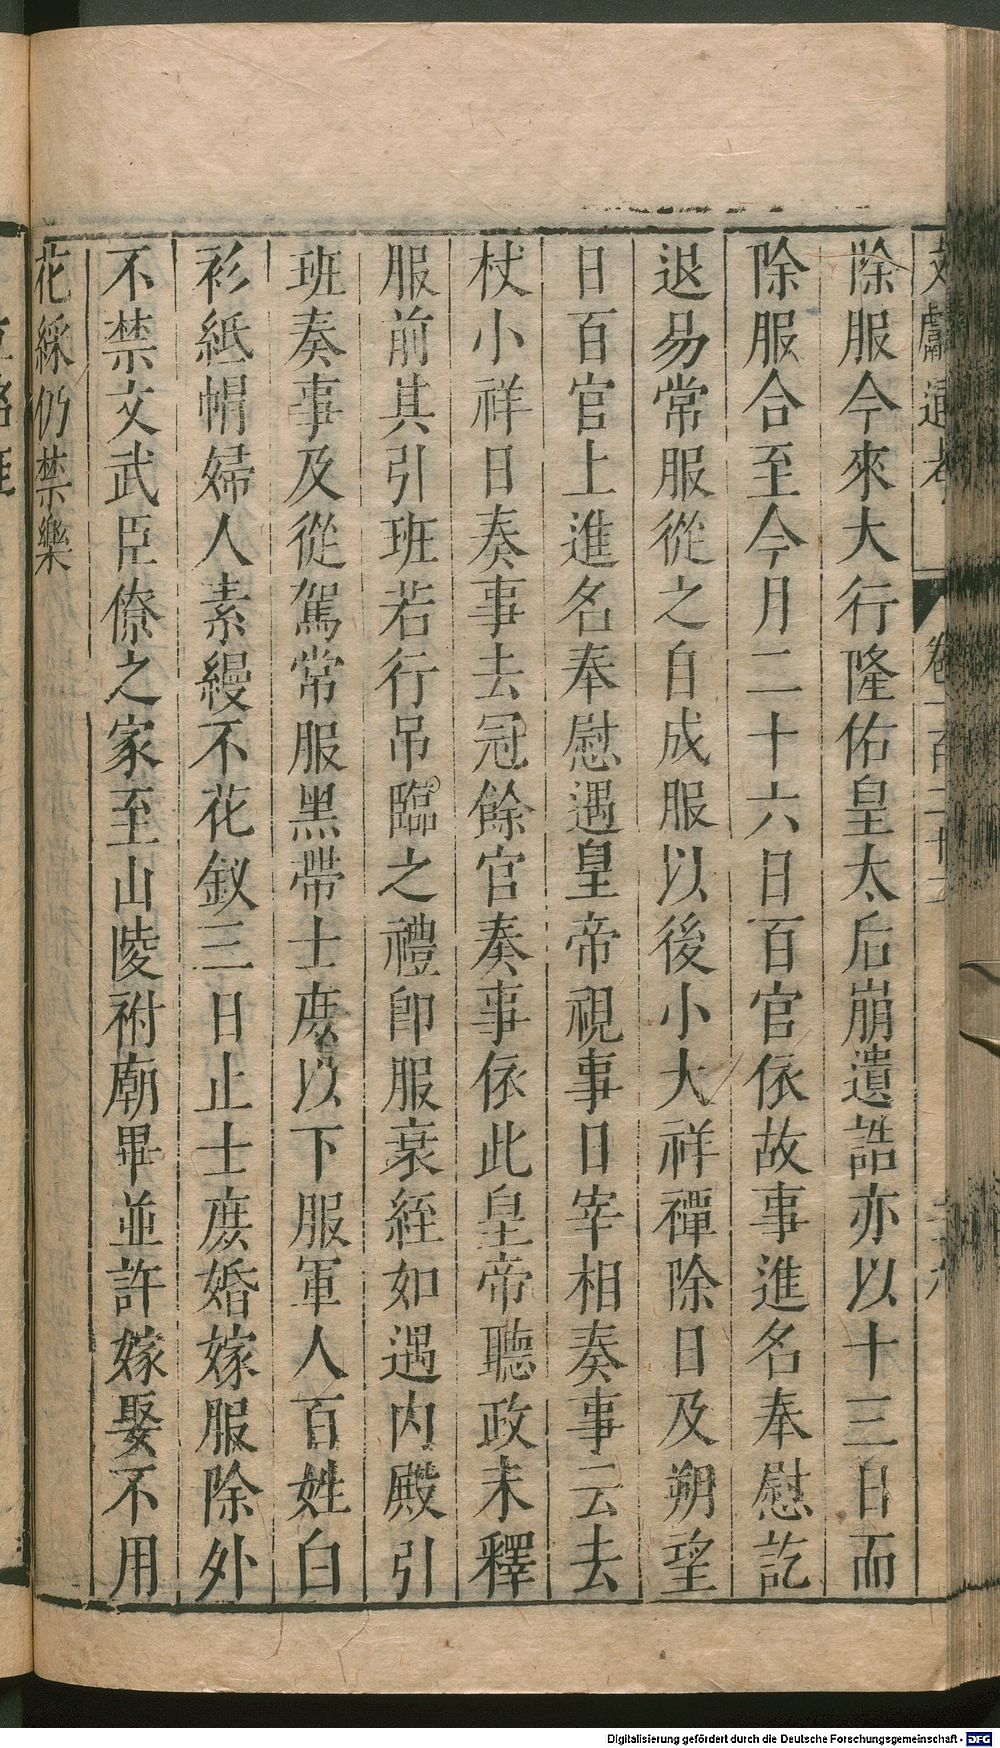 文獻通考 卷一百二十二
除服今來大行隆佑皇太后崩遺誥亦以十三日而
除服合至今月二十六日百官依故事進名奉慰訖
退易常服從之自成服以後小大祥禫除日及朔望
日百官上進名奉慰遇皇帝視事日宰相奏事云去
杖小祥日奏事去冠餘官奏事依此皇帝聽政未釋
服前其引班若行吊臨之禮即服衰絰如遇内殿引
班奏事及從駕常服黑帶士庶以下服軍人百姓白
衫紙帽婦人素縵不花釵三日止士庶婚嫁服除外
不禁文武臣僚之家至山陵祔廟畢並許嫁娶不用
花綵仍禁樂
Digitalisierung gefördert durch die Deutsche Forschungsgemeinschaft - DFG